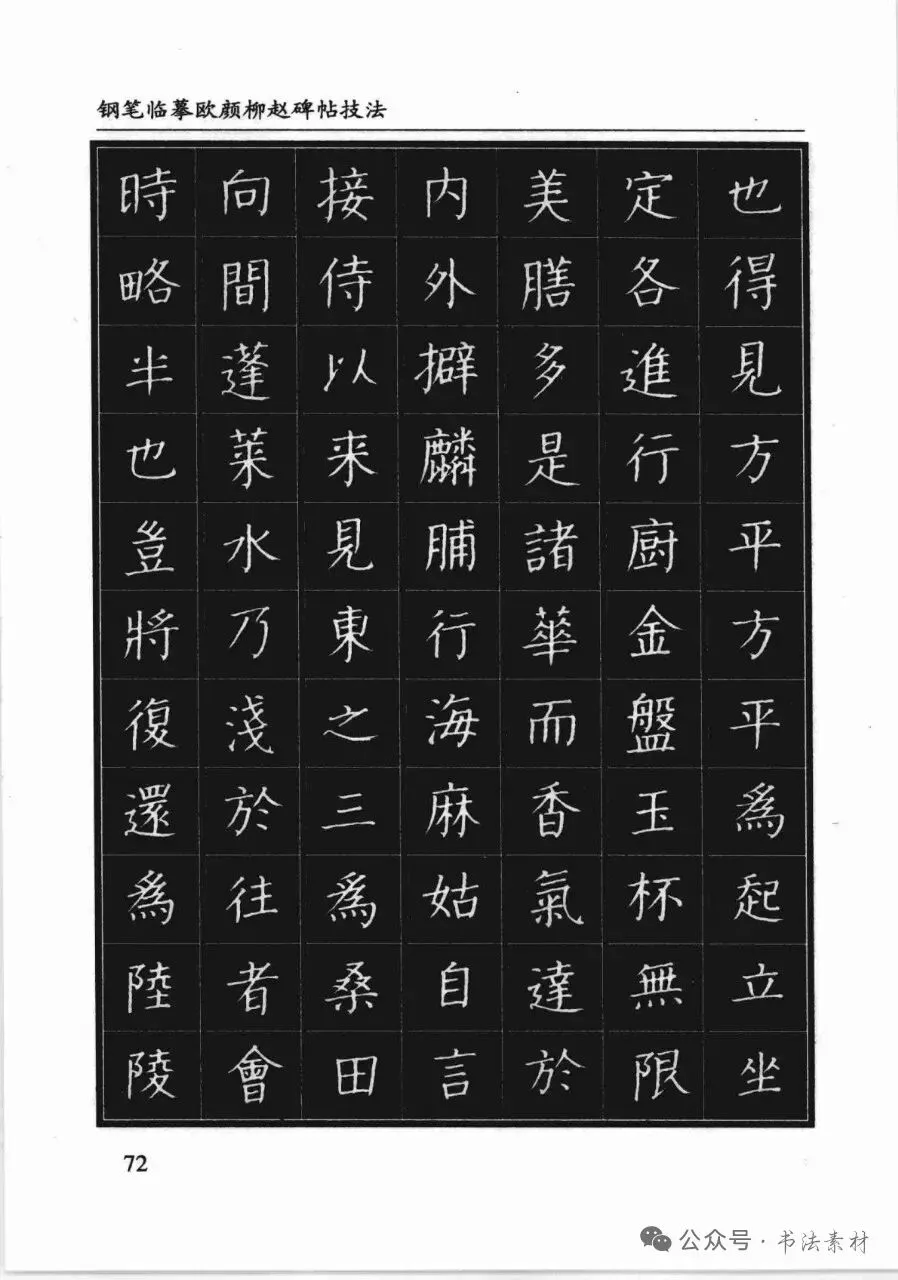 钢笔临摹欧颜柳赵碑帖技法
也得見方平方平爲起立坐
定各進行廚金盤玉杯無限
美膳多是諸華而香氣達於
内外擗麟脯行海麻姑自言
接侍以来見東之三爲桑田
向間蓬莱水乃淺於往者會
時略半也豈將復還爲陸陵
72
公众号·书法素材